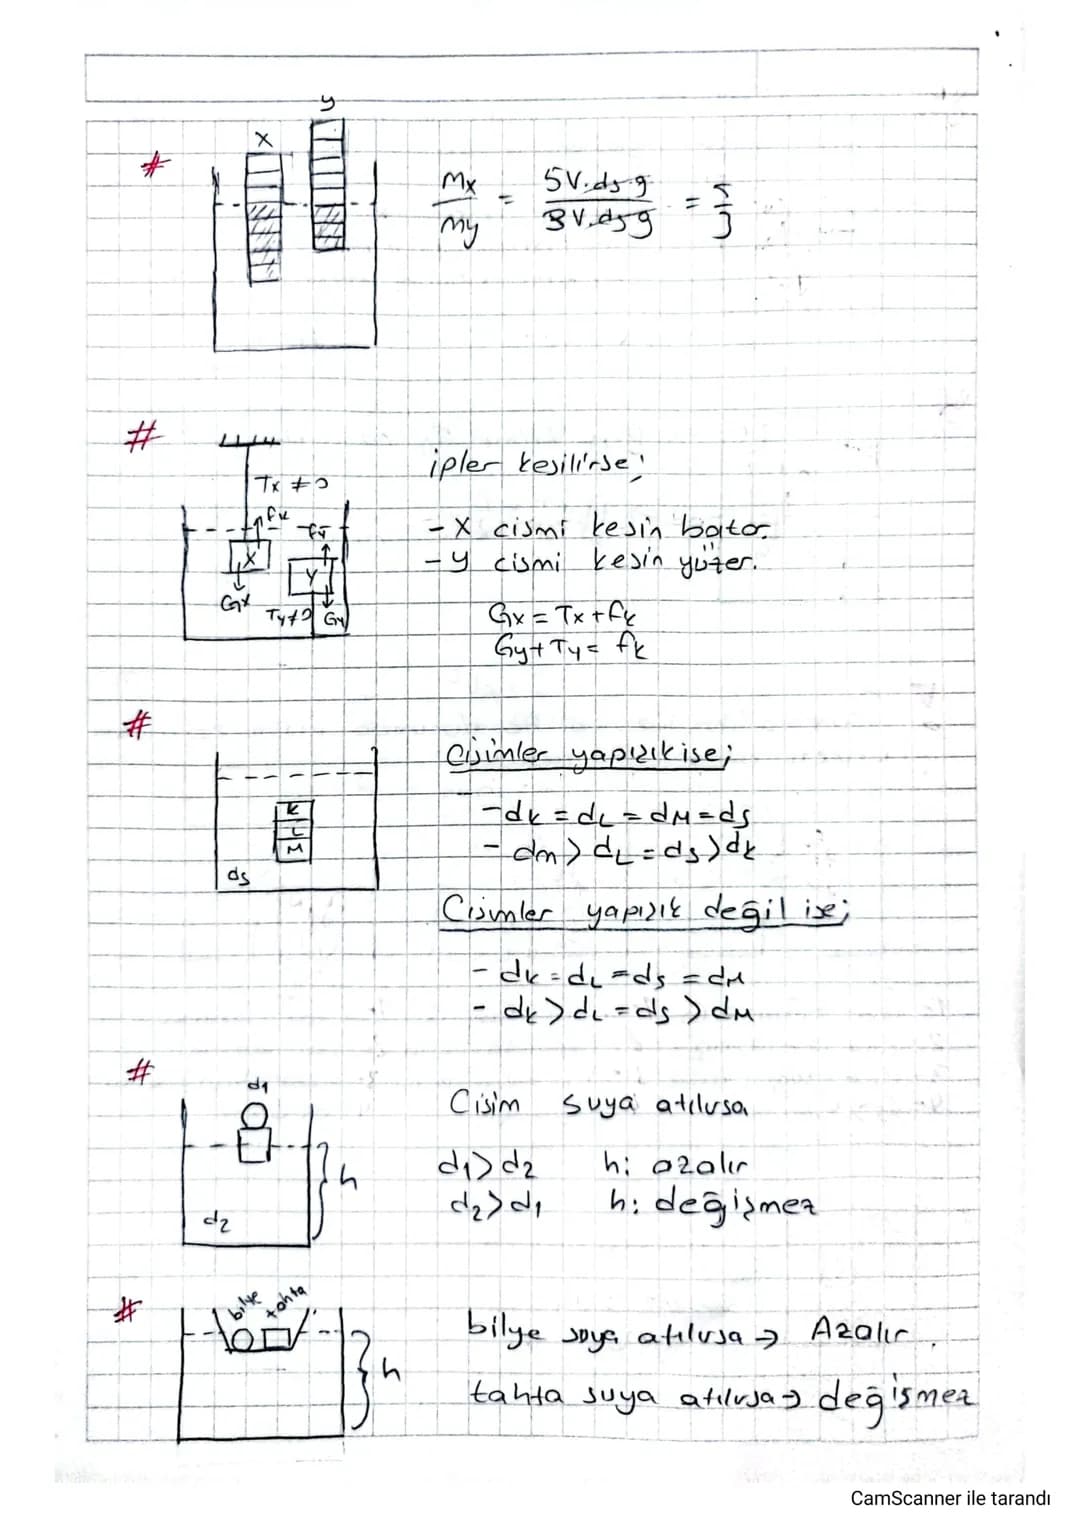 #
X
y
Mx / My = 5V.ds.g / 3V.ds.g = 5/3
#
Tx ≠ 0
fk
fk
X
Y
Gx
Ty≠0
Gy
ipler kesilirse;
- X cismi kesin batar.
- y cismi kesin yüzer.
Gx = Tx + fk
Gy + Ty = fk
#
K
L
M
ds
Cisimler yapışık ise;
- dk = dL = dM = ds
- dm > dL = ds > dk
Cisimler yapışık değil ise;
- dk = dL = ds = dM
- dk > dL = ds > dM
#
d1
h
d2
Cisim suya atılırsa
d1 > d2 h: azalır
d2 > d1 h: değişmez
#
bilye
tahta
h
bilye suya atılırsa → Azalır.
tahta suya atılırsa → değişmez
CamScanner ile tarandı